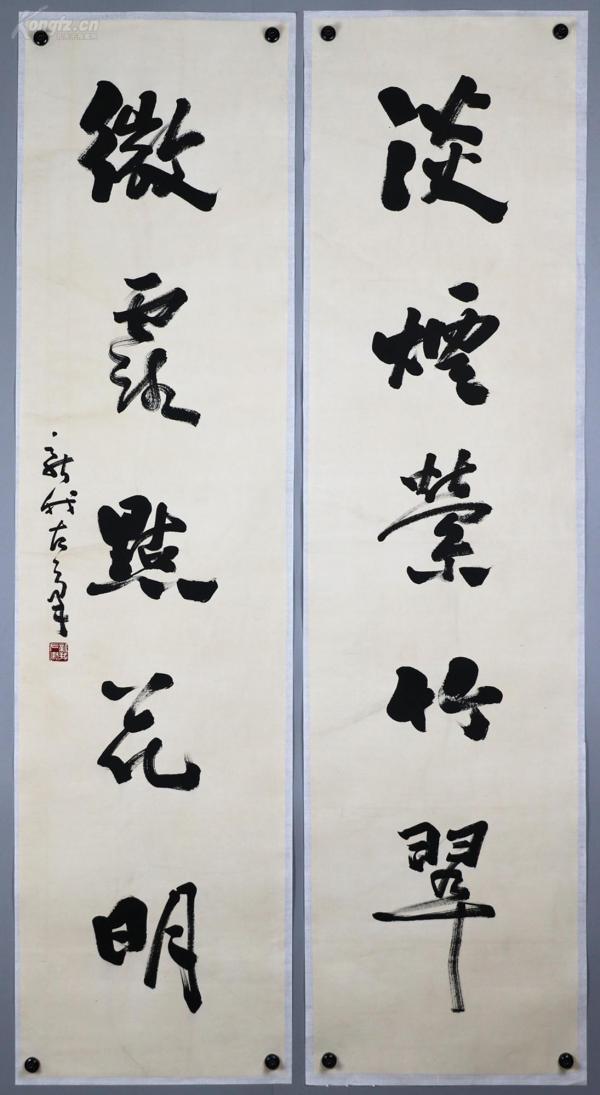 淡煙縈竹翠
微露點花明
新我左筆
Kongfz.cn